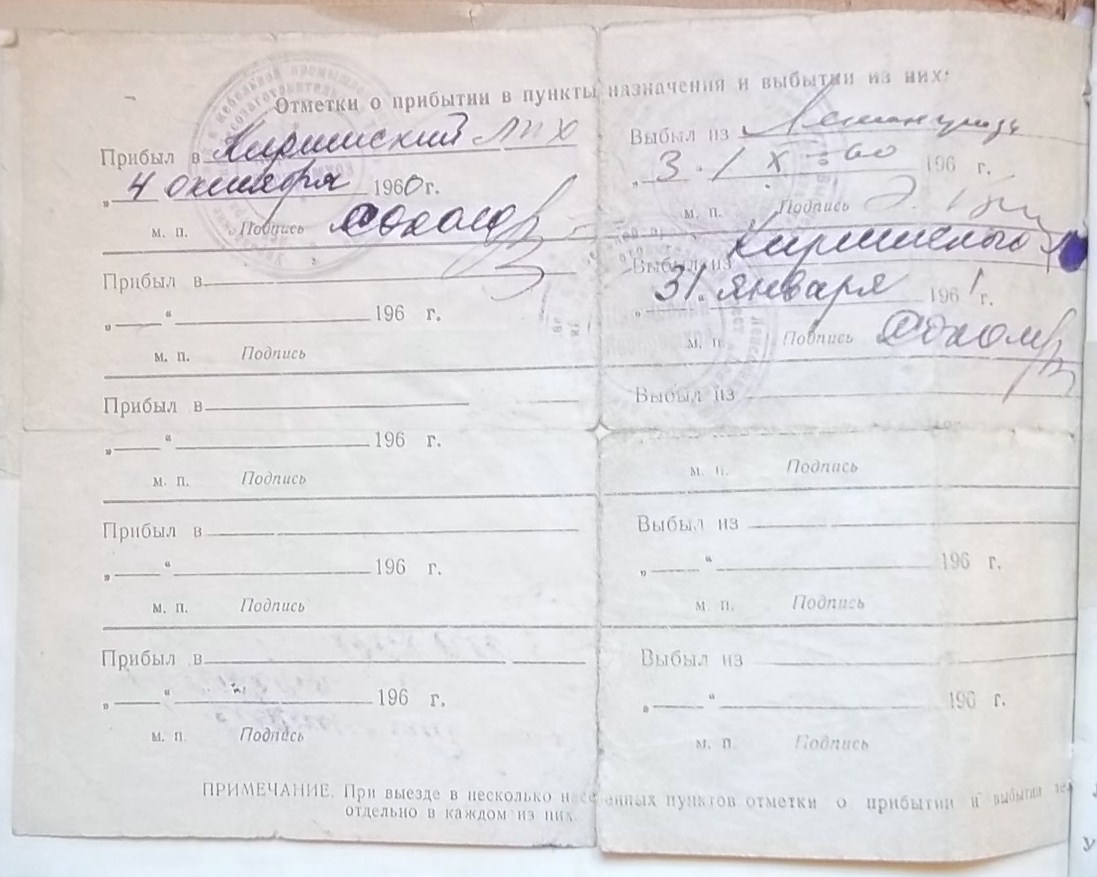 Отметки о прибытии в пункты назначения и выбытии из них:
Прибыл в Киришский ЛПХ
„ 4 октября 1960 г.
м. п. Подпись
Выбыл из Ленинграда
„ 3. IX - 60 196 г.
м. п. Подпись
Прибыл в
„ “ 196 г.
м. п. Подпись
Выбыл из Киришского
„ 31 “ января 1961 г.
м. п. Подпись
Прибыл в
„ “ 196 г.
м. п. Подпись
Выбыл из
м. п. Подпись
Прибыл в
„ “ 196 г.
м. п. Подпись
Выбыл из
„ “ 196 г.
м. п. Подпись
Прибыл в
„ “ 196 г.
м. п. Подпись
Выбыл из
„ “ 196 г.
м. п. Подпись
ПРИМЕЧАНИЕ. При выезде в несколько населенных пунктов отметки о прибытии и выбытии
отдельно в каждом из них.